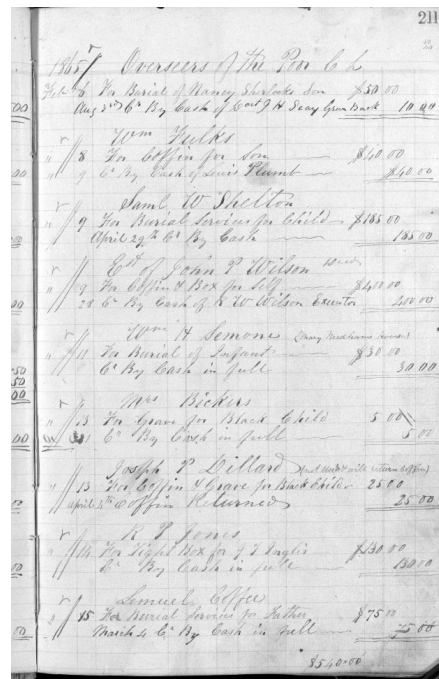 211
1865 Overseers of the Poor C L
Feb 6 For Burial of Nancy Sherlocks Son $50.00
Aug 2nd Cr By Cash of Capt J H Seay Green Back 10.00
Wm Fulks
" 8 For Coffin for Son $40.00
" 9 Cr By Cash of Lewis Plumb $40.00
Saml W Shelton
" 9 For Burial Services for Child $185.00
April 29th Cr By Cash 185.00
Est of John P Wilson
" 9 For Coffin & Box for Self $400.00
28 Cr By Cash of R W Wilson Executor 400.00
Wm H Semone (Mary Needhams House)
" 11 For Burial of Infant $30.00
Cr By Cash in full 30.00
Mrs Bickers
" 13 For Grave for Black Child 5.00
Cr By Cash in full 5.00
Joseph P Dillard (not used & will return coffin)
" 13 For Coffin & Grave for Black Child 25.00
april 4th Coffin Returned 25.00
R T Jones
" 14 For Tight Box for J T $130.00
Cr By Cash in full 130.00
Lemuel Coffee
" 15 For Burial Services for Father $75.00
March 4 Cr By Cash in full 75.00
$540.00